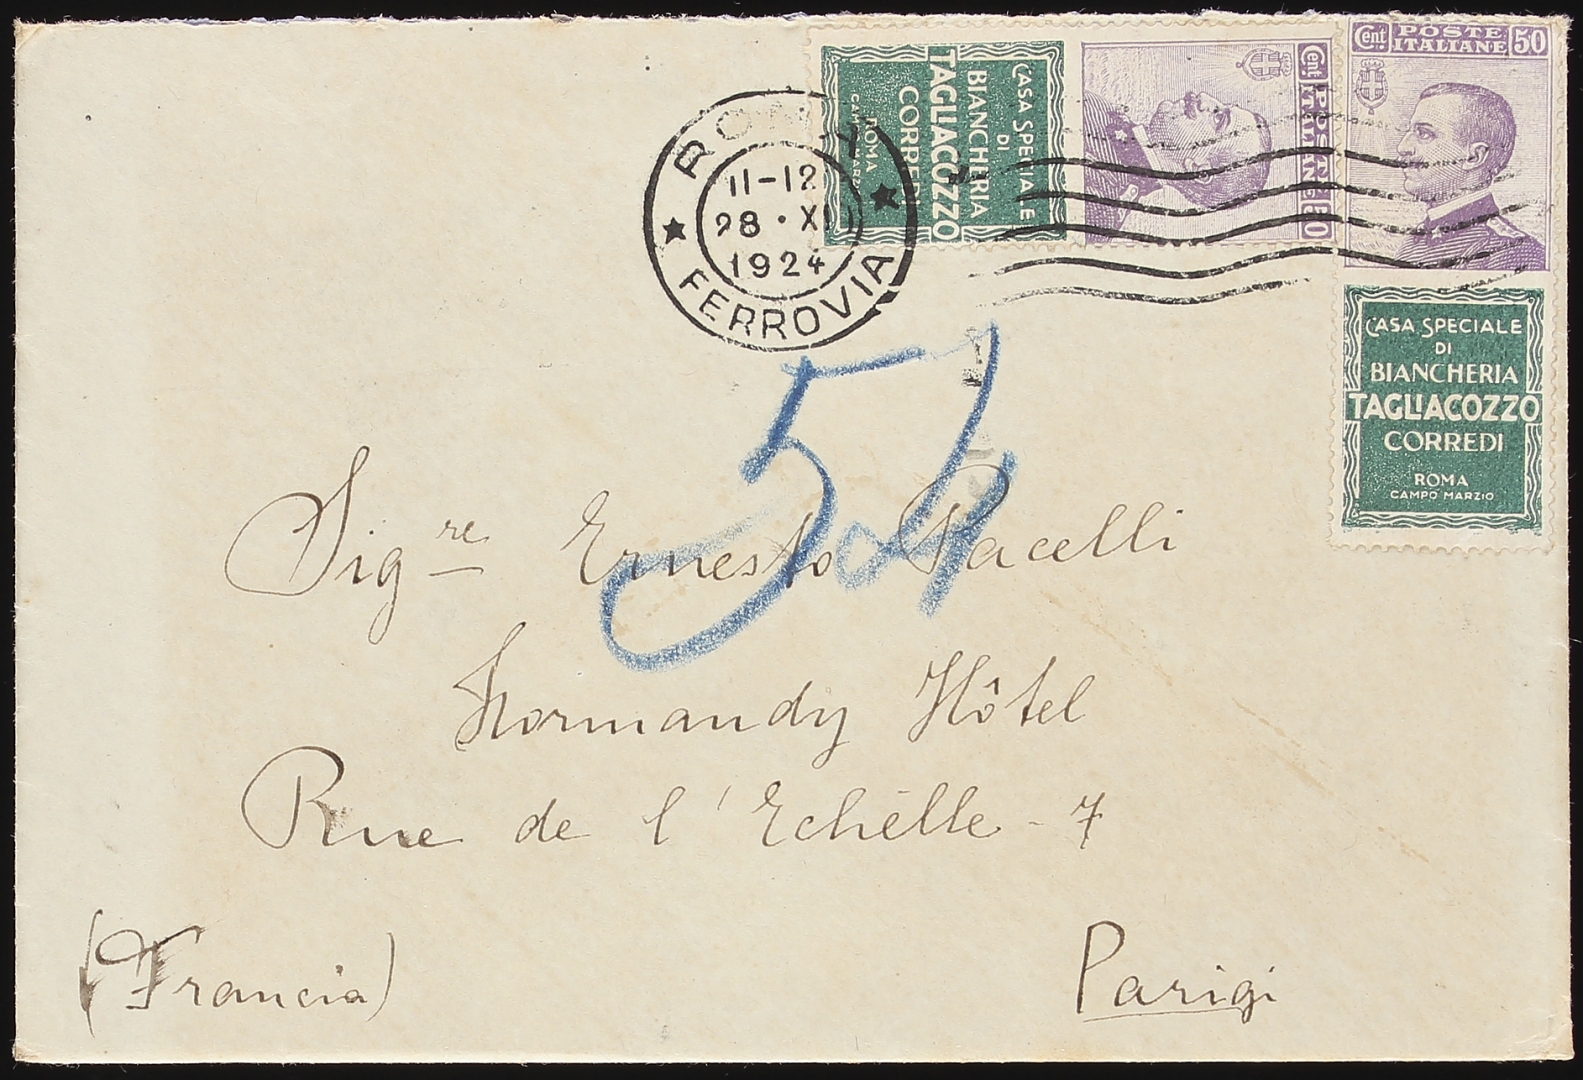 ROMA
11-12
28 · XII
1924
FERROVIA
CASA SPECIALE
DI
BIANCHERIA
TAGLIACOZZO
CORREDI
ROMA
CAMPO MARZIO
Cent. POSTE ITALIANE 50
Cent. POSTE ITALIANE 50
CASA SPECIALE
DI
BIANCHERIA
TAGLIACOZZO
CORREDI
ROMA
CAMPO MARZIO
54
Sig.re Ernesto Pacelli
Normandy Hôtel
Rue de l'Echèlle - 7
(Francia)
Parigi